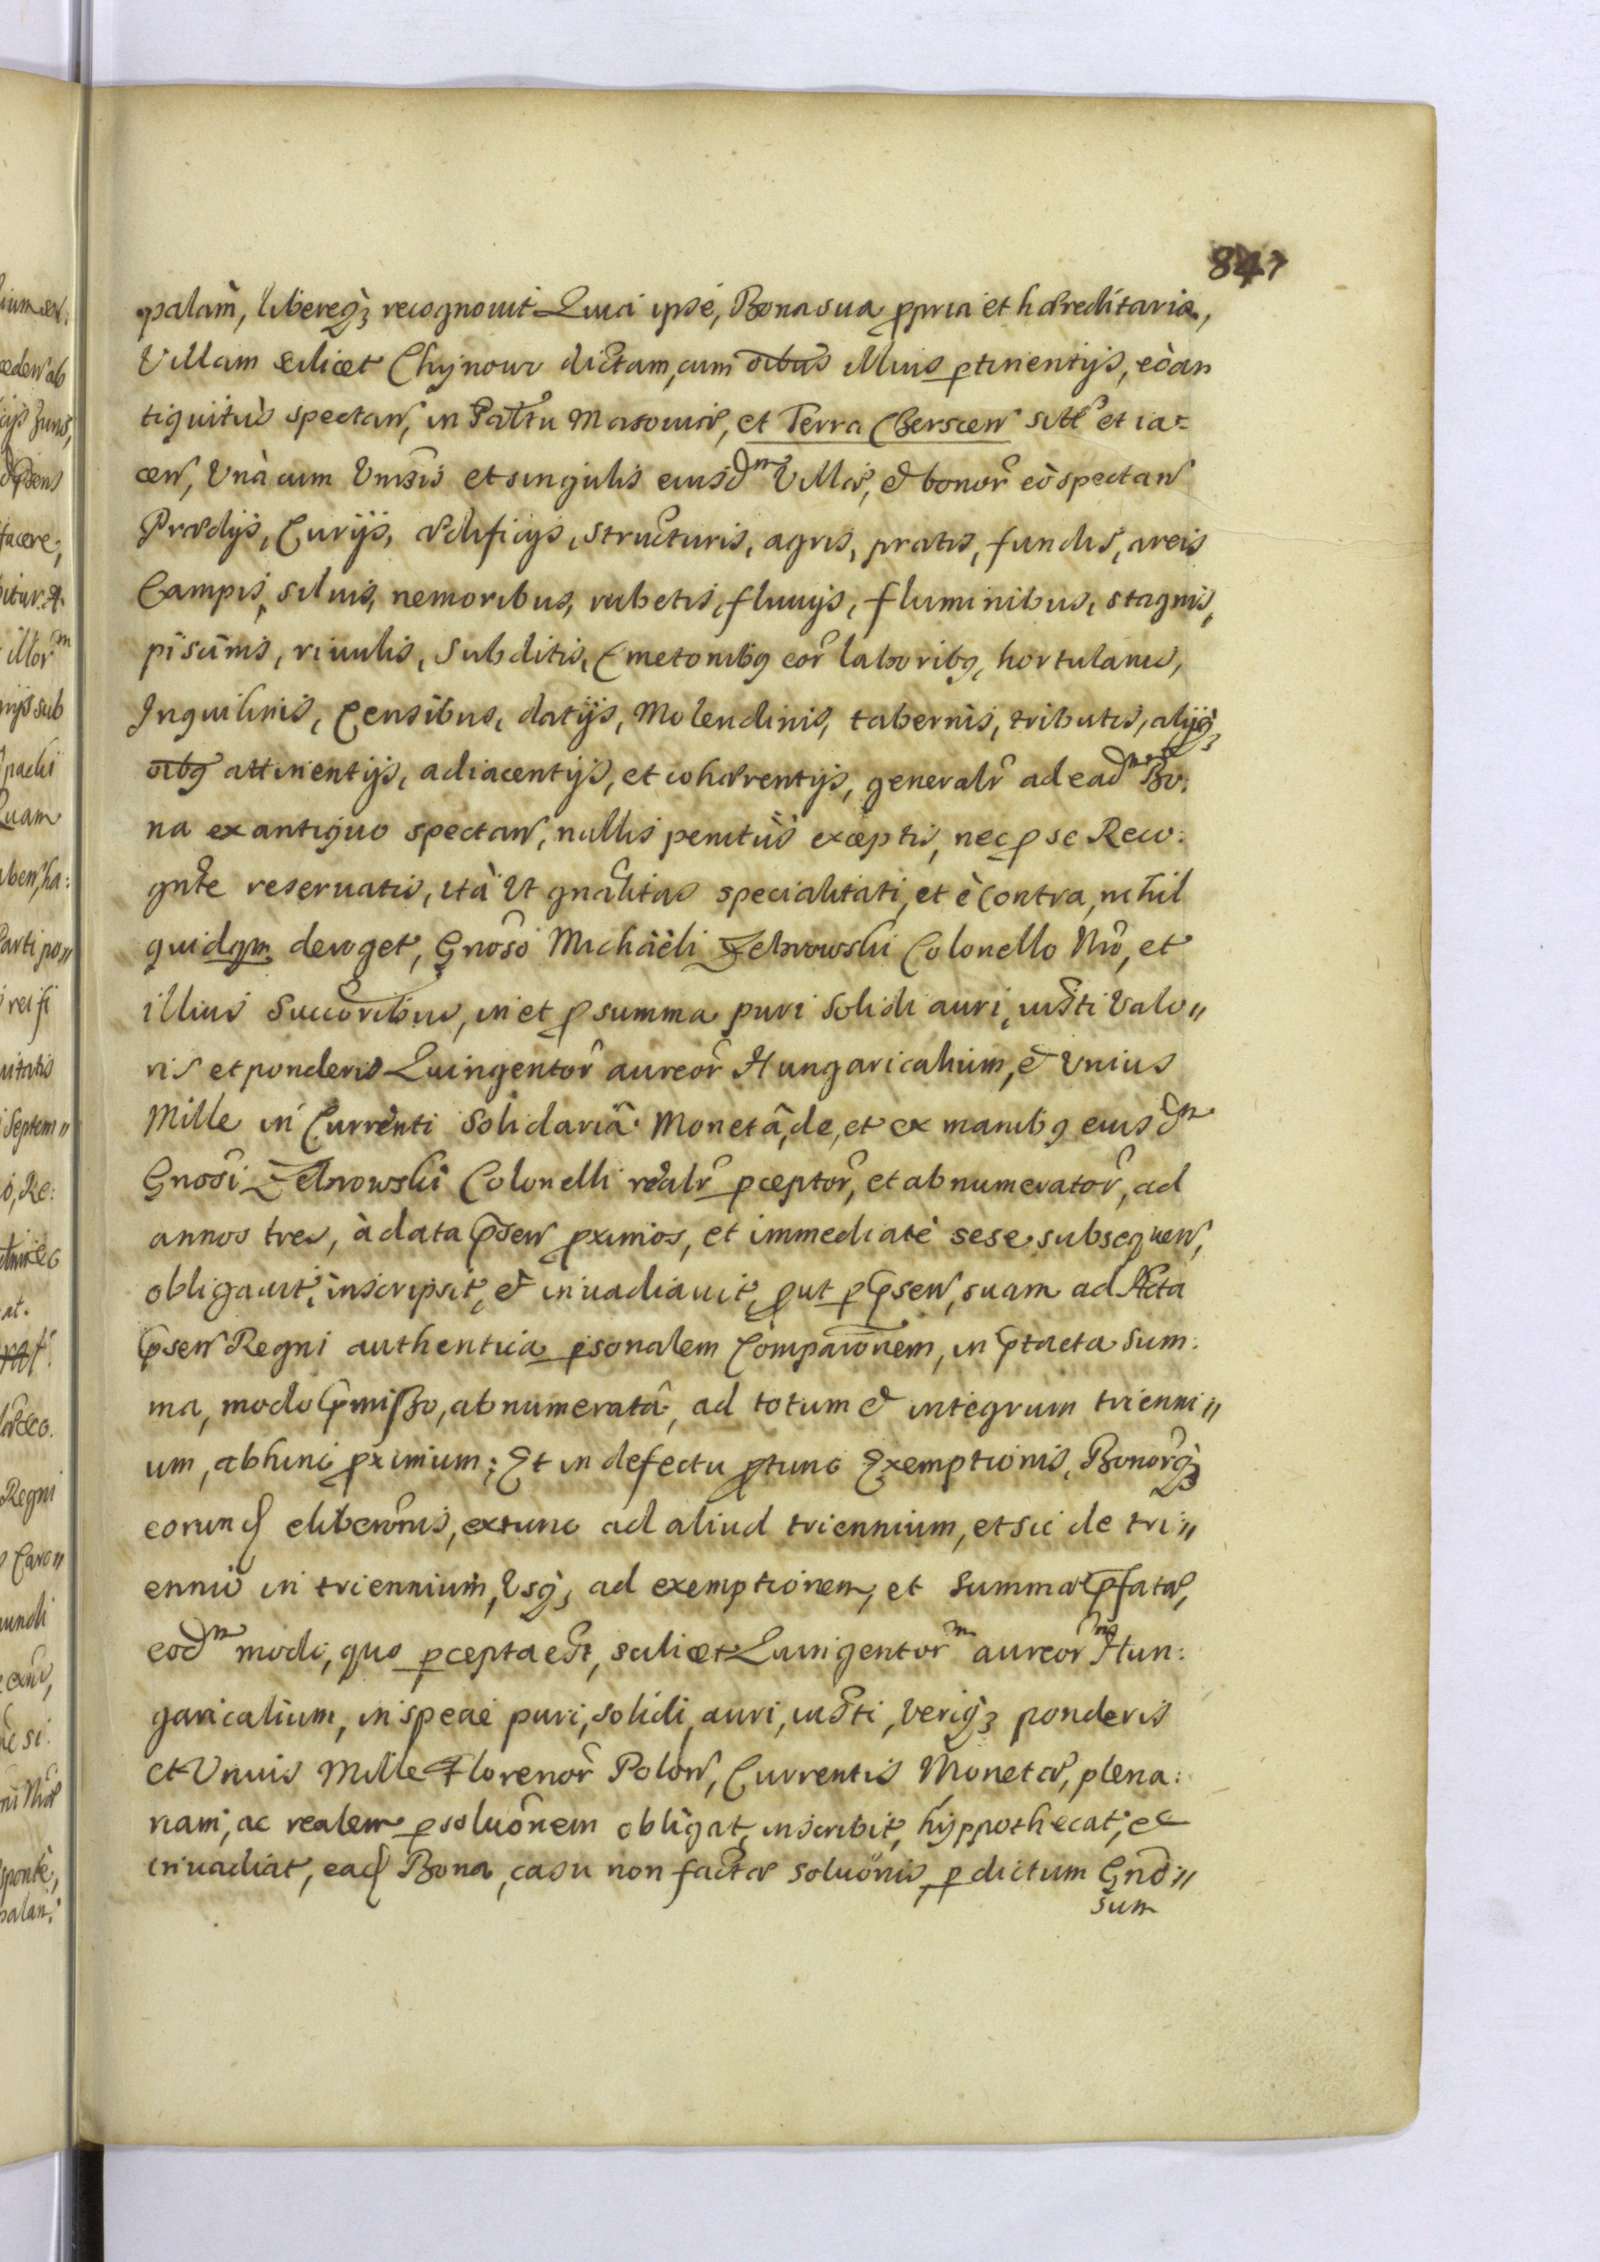 847
palàm, libereq3 recognovit Quia ipse, Bona sua ppria et hæreditaria,
Villam scilicet Chÿnow dictam, cum oibus illius ptinentijs, eò an
tiquitùs spectan, in Pallttu Masoviæ, et Terra Cherscen sitt et ia-
cen, Vnà cum Vnisis et singulis eiusdm Villæ, & bonor eò spectan
Prædijs, Curijs, ædificijs, structuris, agris, pratis, fundis, areis
Campis, siluis, nemoribus, rubetis, fluuijs, fluminibus, stagnis,
piscinis, riuulis, Subditis, Cmetonibq eor laboribq, hortulanis,
Inquilinis, Censibus, datijs, Molendinis, tabernis, tributis, alijsq3
oibq attinentijs, adiacentijs, et cohærentijs, generalr ad eadm Bo:
na ex antiquo spectan, nullis penitùs exceptis, nec p se Reco:
gnte reservatis, ità Vt gnalitas specialitati, et è Contra, nihil
quidqm deroget, Gnoso Michaëli Zebrowski Colonello Nro, et
illius Succoribus, in et p summa puri Solidi auri, iusti Valo"
ris et ponderis Quingentor aureor Hungaricalium, & Vnius
Mille in Currenti Solidariâ Monetâ, de, et ex manibq eiusdm
Gnosi Zebrowski Colonelli realr pceptor, et abnumerator, ad
annos tres, à data psen pximos, et immediatè sese subsequen,
obligavit, inscripsit, & inuadiauit, put p psen, suam ad Acta
psen Regni authentica psonalem Compaionem, in ptacta Sum:
ma, modo pmisso, abnumeratâ, ad totum & integrum trienni"
um, abhinc pximum; Et in defectu ptunc Exemptionis, Bonorq3
eorund eliberonis, extunc ad aliud triennium, et sic de tri"
ennio in triennium, Vsq3 ad exemptionem, et Summæ pfatæ,
eodm modo, quo pcepta est, scilicet Quingentorm aureorm Hun:
garicalium, in specie puri, solidi, auri, iusti, veriq3 ponderis
et Vnius Mille Florenor Polon, Currentis Monetæ, plena:
riam, ac realem psoluonem obligat, inscribit, hÿppothecat, et
inuadiat, ead Bona, casu non factæ soluonis, p dictum Gno"
sum